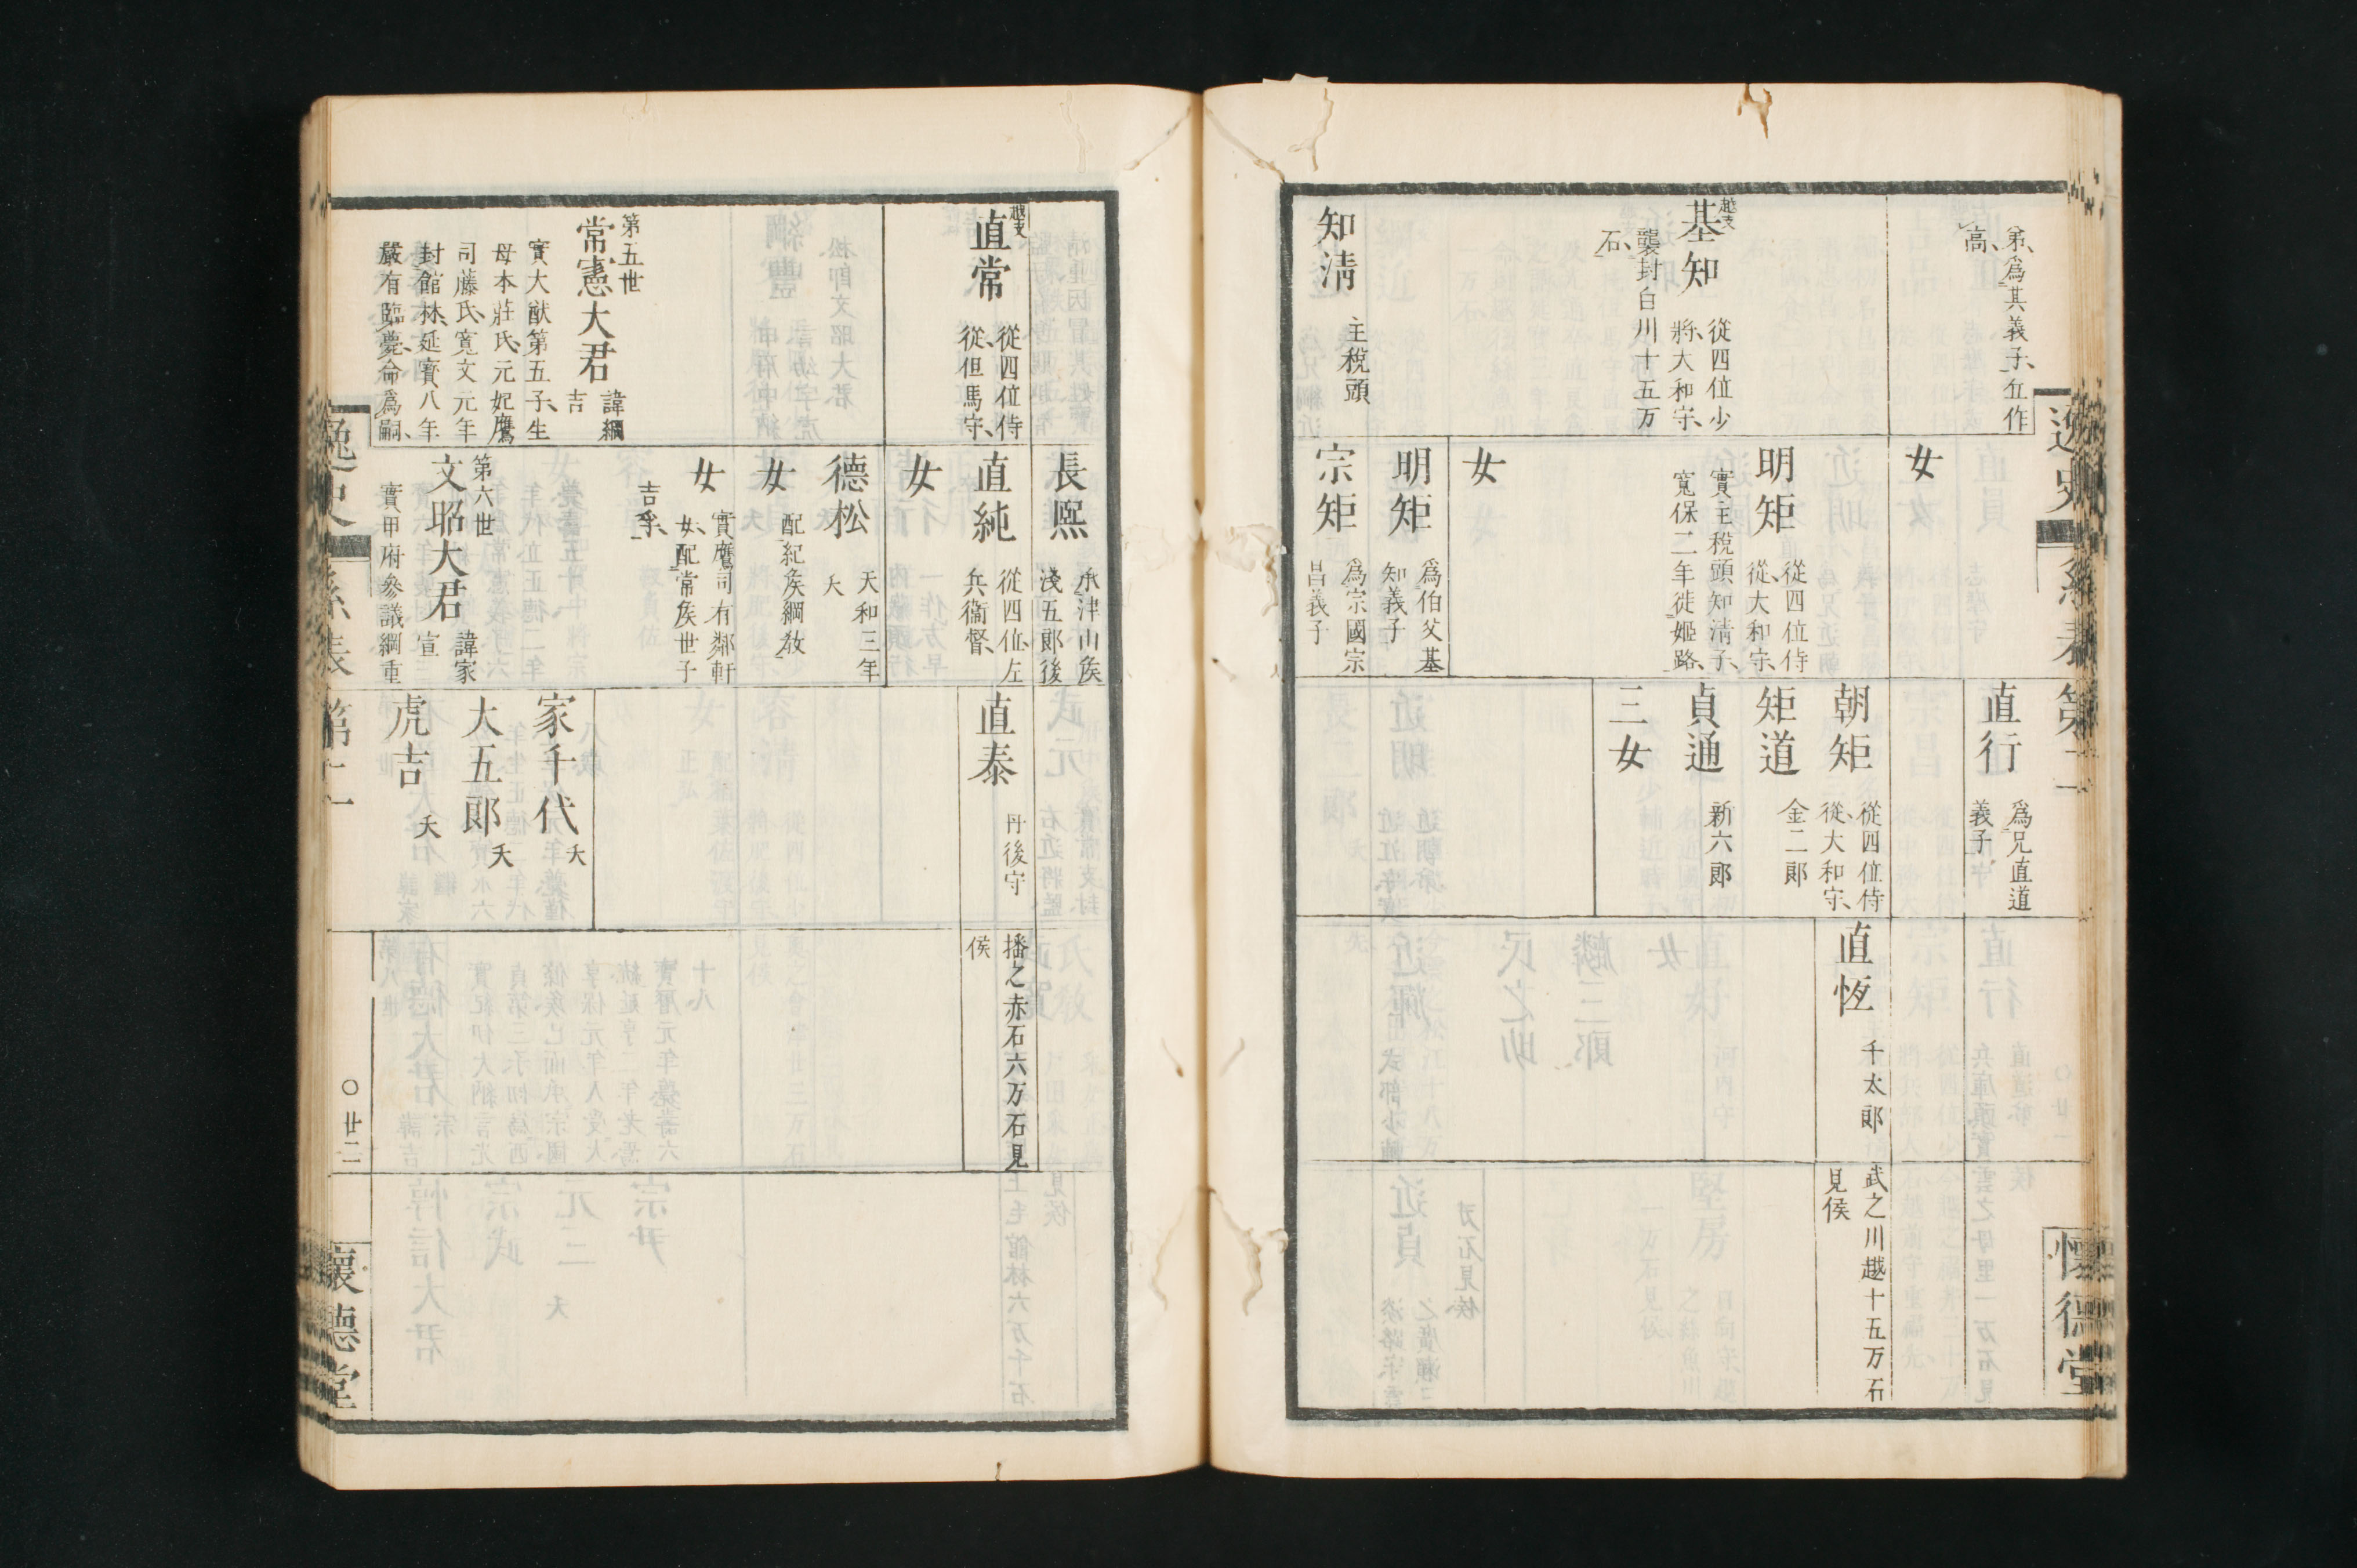 逸史
系表
第二
懷德堂
弟、爲其義子、左作
高、
女
直行
爲兄直道
義子
越支
基知
從四位少
將、大和守、
襲封白川十五万
石、
明矩
從四位侍
從、大和守、
實主税頭知清子、
寬保二年徙姬路、
女
朝矩
從四位侍
從、大和守、
矩道
金二郎
貞通
新六郎
三女
直恆
千太郎
武之川越十五万石
見侯
知淸
主税頭
明矩
爲伯父基
知義子
宗矩
爲宗國宗
昌義子
長熙
承津山侯
淺五郎後
越支
直常
從四位侍
從、但馬守、
直純
從四位、左
兵衞督、
女
直泰
丹後守
播之赤石六万石見
侯
德松
天和三年
夭
女
配紀侯綱教
女
實鷹司有鄰軒
女、配常侯世子
吉孚、
第五世
常憲大君
諱綱
吉
實大猷第五子、生
母本莊氏、元妃鷹
司藤氏、寬文元年
封館林、延寶八年
嚴有臨薨、命爲嗣、
第六世
文昭大君
諱家
宣
實甲府參議綱重
家千代
夭
大五郎
夭
虎吉
夭
逸史
系表
第二
○廿二
懷德堂